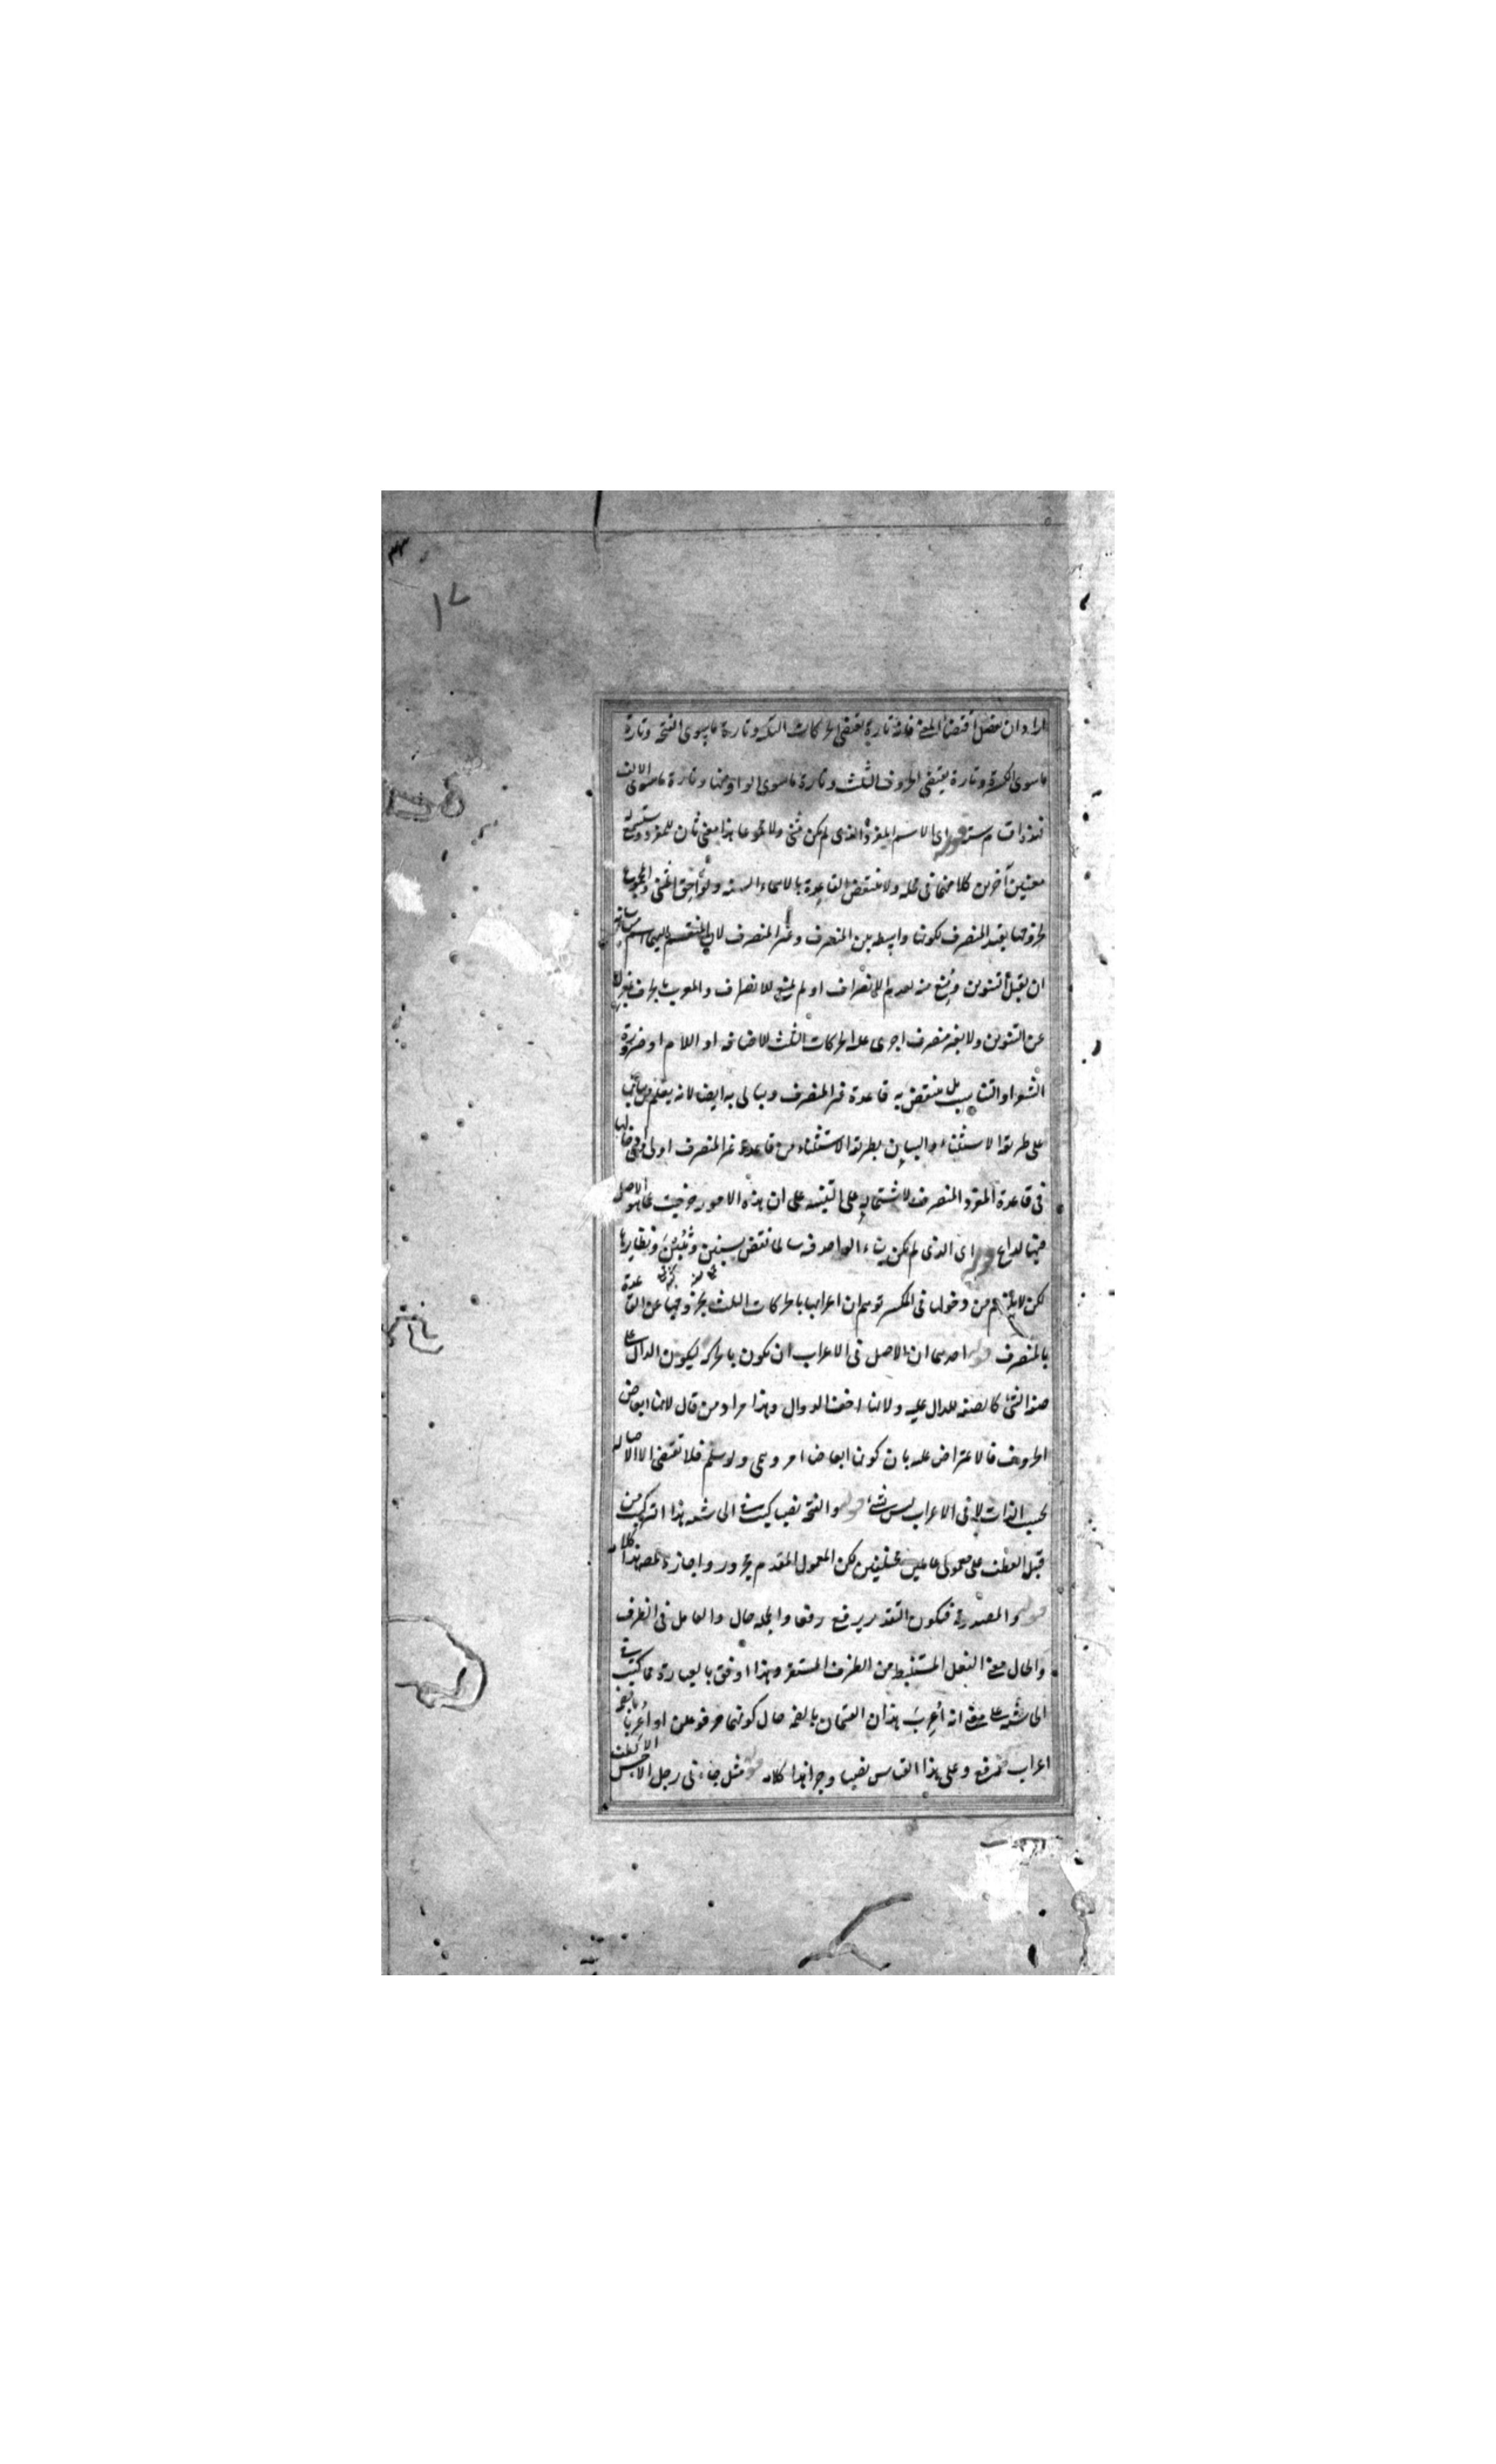 اراد ان يفصل اقتضاء المعنى فانه تارة يقتضي الحركات الثلث وتارة ما سوى الفتحة وتارة
ما سوى الكسرة وتارة يقتضي الحروف الثلث وتارة ما سوى الواو منها وتارة ما سوى الالف
فهذه اقسام ستة قوله اى الاسم المفرد الذى لم يكن مثنى ولا مجموعا هذا معنى ثان للمفرد وستسمع
معنيين آخرين كلا منهما فى محله ولا ينتقض القاعدة بالاسماء الستة ولواحق المثنى والمجموع
لخروجها بقيد المنصرف لكونها واسطة بين المنصرف وغير المنصرف لان المنقسم اليهما اسم شانه
ان يقبل التنوين ويمنع منه لعدم الانصراف او لم يمنع للانصراف والمعرب بالحرف بمعزل
عن التنوين ولا بغير منصرف اجرى عليه الحركات الثلث للاضافة او اللام او ضرورة
الشعر او التناسب بل ينتقض به قاعدة غير المنصرف ولا يبالى به ايضا لانه يعلم من بيانه
على طريقة الاستثناء والبيان بطريقة الاستثناء من قاعدة غير المنصرف اولى من ادخالها
فى قاعدة المفرد المنصرف لاشتماله على التنبيه على ان هذه الامور خرجت عما هو الاصل
فيها لداع قوله اى الذى لم يكن بناء الواحد فيه سالما نقض بسنين وثبين ونظايرها
لكن لا يلزم من دخولها فى المكسر توهم ان اعرابها بالحركات الثلث لخروجها عن القاعدة
بالمنصرف قوله احدهما ان الاصل فى الاعراب ان يكون بالحركة ليكون الدال على
صفة الشئ كالصفة للدال عليه ولانها اخف الدوال وهذا مراد من قال لانها ابعاض
الحروف فالاعتراض عليه بان كونها ابعاضا امر وهمى ولو سلم فلا تقتضى الا الاصالة
بحسب الذات لا فى الاعراب ليس بشئ قوله والفتحة نصبا كتب فى الحاشية هذا التركيب من
قبيل العطف على معمولى عاملين مختلفين لكن المعمول المقدم مجرور واجازه المص هذا كلامه
قوله والمصدرية فيكون التقدير يرفع رفعا والجملة حال والعامل فى الظرف
والحال معنى الفعل المستنبط من الظرف المستقر وهذا اوفق بالعبارة مما كتب فى
الحاشية على معنى انه أعرب هذان القسمان بالضمة حال كونهما مرفوعين او أعربا بالضمة
اعراب رفع وعلى هذا القياس نصبا وجرا هذا كلامه قوله مثل جاءنى رجل الاحسن الاكتفاء